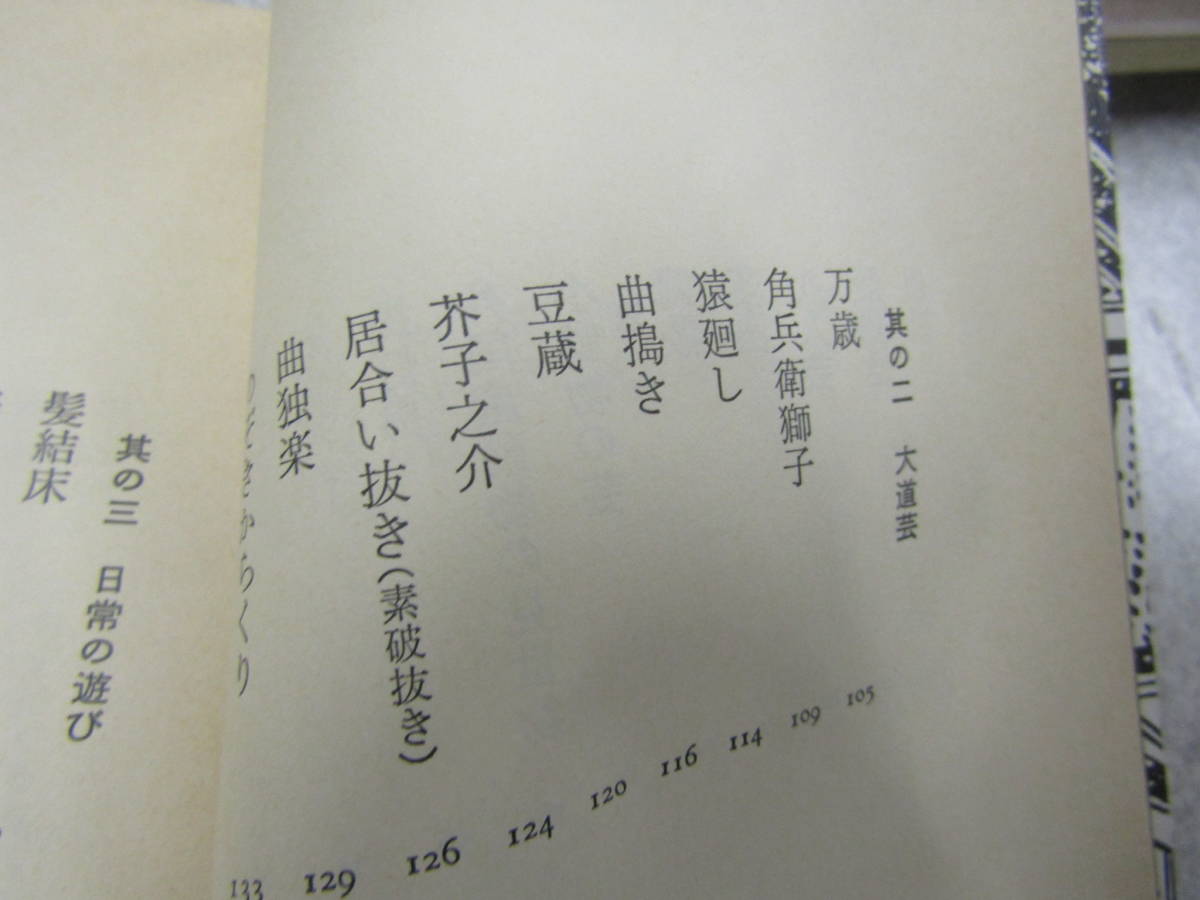 其の二 大道芸
万歳 105
角兵衛獅子 109
猿廻し 114
曲搗き 116
豆蔵 120
芥子之介 124
居合い抜き(素破抜き) 126
曲独楽 129
のぞきからくり 133
其の三 日常の遊び
髪結床